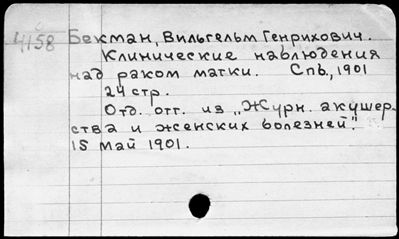 4158 Бекман, Вильгельм Генрихович.
Клинические наблюдения
над раком матки. Спб., 1901
24 стр.
Отд. отт. из „Журн. акушер-
ства и женских болезней".
15 май 1901.